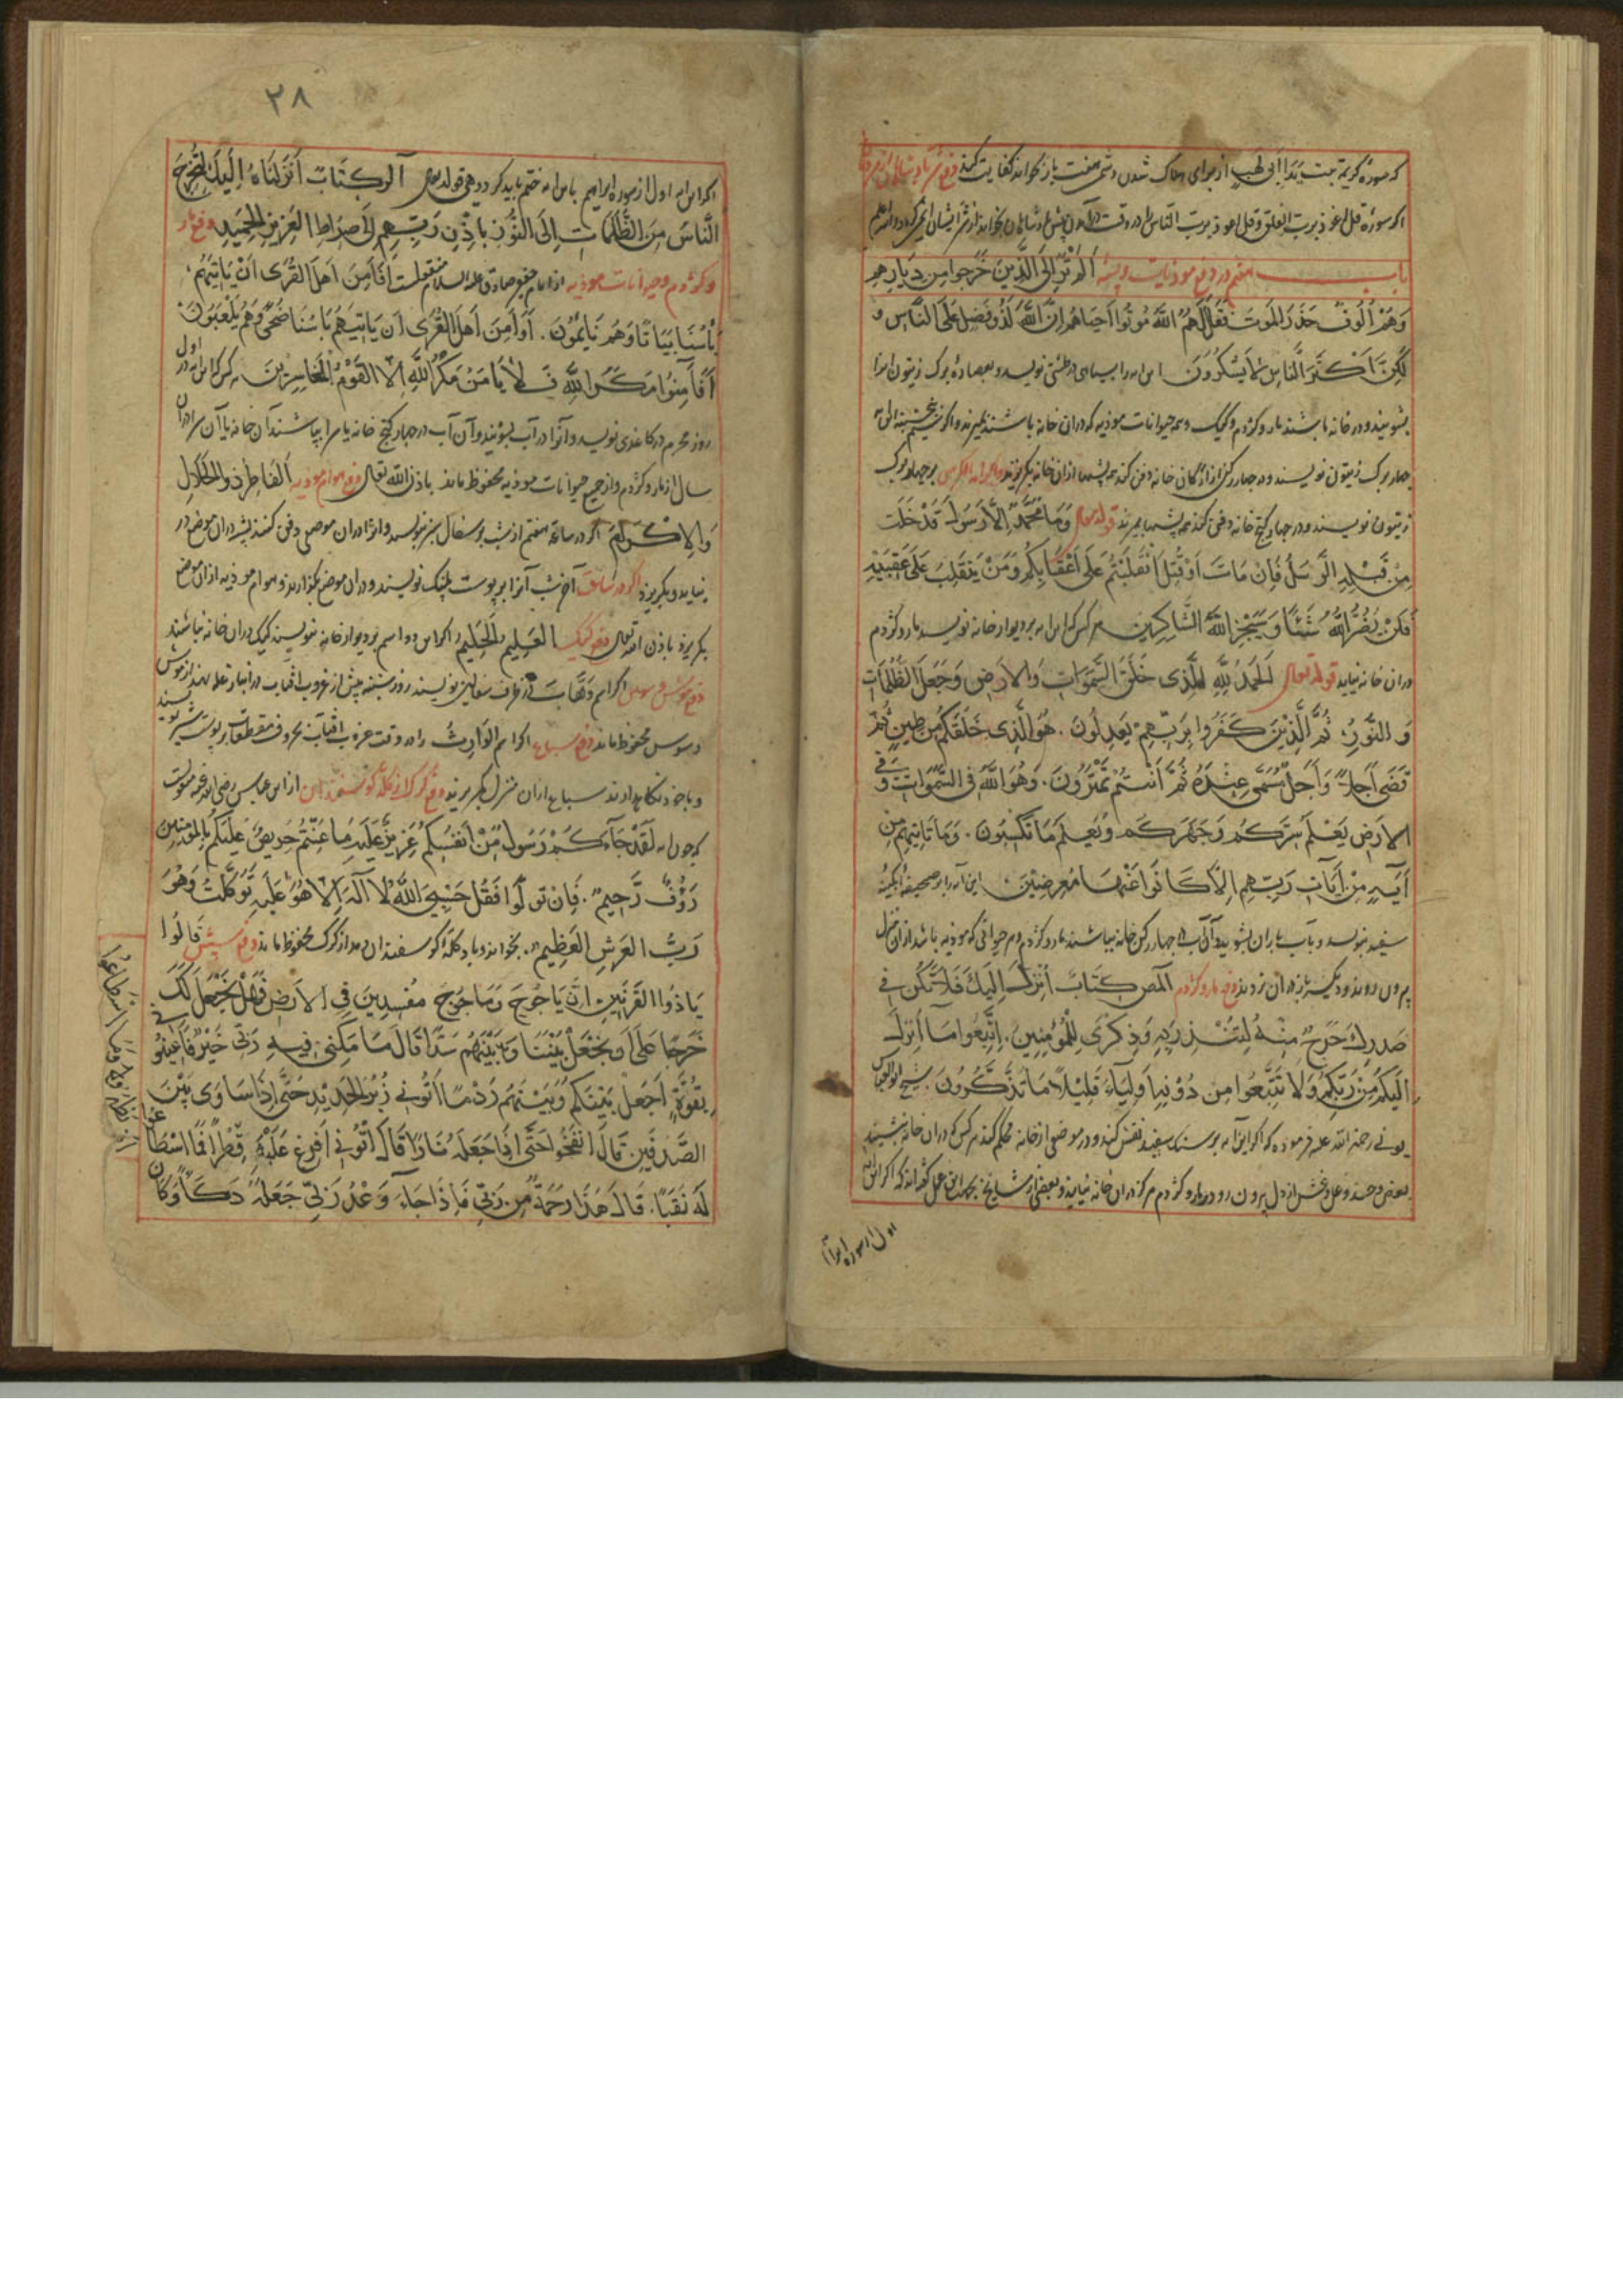 که سوره کریمه تبت یدا ابی لهب از برای هلاک شدن دشمن هفت بار بخواند کفایت کند
اگر سوره قل اعوذ برب الفلق و قل اعوذ برب الناس را در وقت پیش بخواند از شر ایشان ایمن گردد
باب هفتم در دفع موذیات و پشه اَلَمْ تَرَ اِلَی الَّذِینَ خَرَجُوا مِن دِیَارِهِمْ
وَهُمْ اُلُوفٌ حَذَرَ المَوتَ فَقَالَ لَهُمُ اللَّهُ مُوتُوا اَحیَاهُم اِنَّ اللَّهَ لَذُو فَضلٍ عَلَی النَّاسِ وَ
لٰکِنَّ اَکْثَرَ النَّاسِ لَا یَشْکُرُونَ این را بسیاهی در طشتی نویسد و بعصاره برک زیتون انرا
بشویند و در خانه باشند مار و کژدم و کیک و همه حیوانات موذیه که دران خانه باشند بمیرند و اگر
چهار برک زیتون نویسند و در چهار رکن از ارکان خانه دفن کند همه پشها ازان خانه بگریزند بر چهار برک
زیتون نویسند و در چهار کنج خانه دفن کند همه پشها بمیرند قوله تعالی وَمَا مُحَمَّدٌ اِلَّا رَسُولٌ قَدْ خَلَت
مِنْ قَبْلِهِ الرُّسُلُ فَاِنْ مَاتَ اَوْ قُتِلَ انْقَلَبْتُمْ عَلَی اَعْقَابِکُمْ وَمَنْ یَنقَلِبْ عَلَی عَقِبَیْهِ
فَلَنْ یَضُرَّ اللَّهَ شَیْئًا وَسَیَجْزِی اللَّهُ الشَّاکِرِینَ هر کس که این بر دیوار خانه نویسد مار و کژدم
دران خانه نیاید قوله تعالی اَلحَمدُ لِلَّهِ الَّذِی خَلَقَ السَّمَوَاتِ وَالاَرضِ وَجَعَلَ الظُّلُمَاتِ
وَ النُّورِ ثُمَّ الَّذِینَ کَفَرُوا بِرَبِّهِمْ یَعدِلُونَ هُوَ الَّذِی خَلَقَکُمْ مِن طِینٍ ثُمَّ
قَضَی اَجَلاً وَاَجَلٌ مُسَمًّی عِنْدَهُ ثُمَّ اَنْتُمْ تَمْتَرُونَ وَهُوَ اللَّهُ فِی السَّمٰوَاتِ وَفِی
الاَرَضِ یَعْلَمُ سِرَّکُم وَجَهرَکُم وَیَعلَمُ مَا تَکسِبُونَ وَمَا تَاتِیهِم مِن
آیَةٍ مِنْ آیَاتِ رَبِّهِم اِلَّا کَانُوا عَنْهَا مُعرِضِینَ این آیه را بر صحیفه آبگینه
سفید بنویسد و بآب باران بشوید و آن آب در چهار رکن خانه بپاشند مار و کژدم و هر حیوانی که موذیه باشد ازان منزل
بیرون روند و دیگر باز دران نروند دفع مار و کژدم المص کِتَابٌ اُنْزِلَ اِلَیکَ فَلَا یَکُن فِی
صَدرِکَ حَرَجٌ مِنْهُ لِتُنْذِرَ بِهِ وَذِکْرَی لِلْمُؤمِنِینَ اِتَّبِعُوا مَا اُنزِلَ
اِلَیکُم مِنْ رَبِّکُم وَلَا تَتَّبِعُوا مِن دُوْنِهِ اَولِیَاءَ قَلِیْلًا مَا تَذَکَّرُونَ شیخ ابو العباس
بونی رحمة الله علیه فرموده که اگر این آیه بر سنک سفید نقش کند و در موضعی از خانه محکم کند هر کس که دران خانه نشیند
و غش از دل بیرون رود و مار و کژدم هرگز دران خانه نیاید و بعضی از مشایخ گفته اند که اگر این
اول از سوره ابراهیم
۲۸
اگر این آیه اول از سوره ابراهیم باین آیه ختم باید کرد و هی قوله تعالی الر کِتَابٌ اَنْزَلْنَاهُ اِلَیْکَ لِتُخْرِجَ
النَّاسَ مِنَ الظُّلُمَاتِ اِلَی النُّورِ بِاِذْنِ رَبِّهِم اِلَی صِرَاطِ العَزِیزِ الحَمِیدِ دفع مار
و کژدم و حیوانات موذیه از امام جعفر صادق علیه السلام منقولست اَفَاَمِنَ اَهلُ القُرَی اَنْ یَاتِیَهُم
بَاْسُنَا بَیَاتًا وَهُم نَایِمُونَ اَوَ اَمِنَ اَهلُ القُرَی اَن یَاتِیَهُم بَاسُنَا ضُحًی وَهُم یَلْعَبُونَ
اَفَاَمِنُوا مَکرَ اللَّهِ فَلَا یَامَنُ مَکرَ اللَّهِ اِلَّا القَوْمُ الخَاسِرُینَ هر کس که این در اول
روز محرم در کاغذی نویسد و آنرا در آب بشویند و آن آب در چهار کنج خانه یا سرا بپاشند آن خانه یا آن سرا دران
سال از مار و کژدم و از جمیع حیوانات موذیه محفوظ ماند باذن الله تعالی دفع هوام موذیه اَلفَاطِرُ ذوالجَلَالِ
وَالاِکْرَامِ اگر در ساعت هفتم از شب بر سفال سبز بنویسد و انرا دران موضع دفن کنند پشه دران موضع در
نیاید و بگریزد آخر شب آنرا بر پوست پلنک نویسند و دران موضع بگذارند و هوام موذیه ازان موضع
بگریزد باذن الله تعالی دفع کیک العَلِیم الحَلِیم اگر این دو اسم بر دیوار خانه نویسند کیک دران خانه نباشند
دفع موش و سوس اگر اسم وَهَّاب در ظرف سفالین نویسند روز شنبه پیش از غروب افتاب در انبار غله نهند از موش
و سوس محفوظ ماند دفع سباع اگر اسم الوَارِثُ را در وقت غروب افتاب بحروف مقطعات بر پوست شیر نویسند
و با خود نگاه دارند سباع ازان منزل بگریزند دفع گرگ از گله گوسفندان از ابن عباس رضی الله عنه مرویست
که چون لَقَدْ جَآءَکُمْ رَسُولٌ مِنْ اَنفُسِکُم عَزِیزٌ عَلَیهِ مَا عَنِتُّم حَرِیصٌ عَلَیکُم بِالمُؤمِنِینَ
رَؤُفٌ رَحِیمٌ فَاِن تَوَلَّوا فَقُل حَسْبِیَ اللَّهُ لَا آلَهَ اِلَّا هُوَ عَلَیهِ تَوَکَّلتُ وَهُوَ
رَبُّ العَرشِ العَظِیمِ بخواند و باد گله گوسفندان دمد از گرگ محفوظ ماند دفع شپش قَالُوا
یَا ذُوا القَرنَینِ اِنَّ یَاجُوجَ وَمَاجُوجَ مُفسِدِینَ فِی الاَرضِ فَهَل نَجعَلُ لَکَ
خَرجًا عَلَی اَن تَجعَلَ بَیْنَنَا وَبَیْنَهُم سَدًّا قَالَ مَا مَکَّنِّی فِیهِ رَبِّی خَیْرٌ فَاَعِیْنُونِی
بِقُوَّةٍ اَجعَلْ بَیْنَکُم وَبَیْنَهُم رَدْمًا اَتُونِی زُبَرَ الحَدِیْدِ حَتَّی اِذَا سَاوَی بَیْنَ
الصَّدَفَینِ قَالَ انْفُخُوا حَتَّی اِذَا جَعَلَهُ نَارًا قَالَ آتُونِی اُفرِغ عَلَیْهِ قِطرًا فَمَا اسْطَاعُوا
لَهُ نَقبًا قَالَ هٰذَا رَحمَةٌ مِن رَبِّی فَاِذَا جَاءَ وَعْدُ رَبِّی جَعَلَهُ دَکَّاءَ وَکَانَ